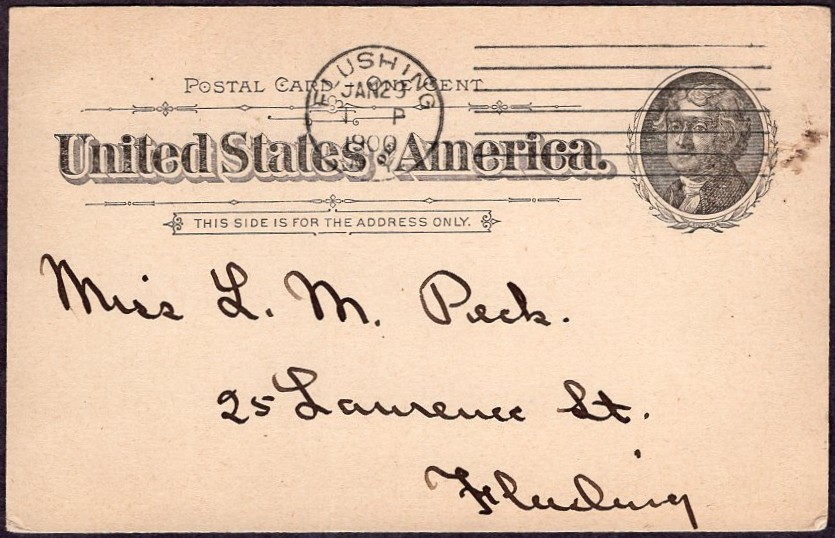 POSTAL CARD - ONE CENT.
FLUSHING
JAN 29
1 P
1900
United States of America.
THIS SIDE IS FOR THE ADDRESS ONLY.
Miss L. M. Peck.
25 Laurence St.
Flushing